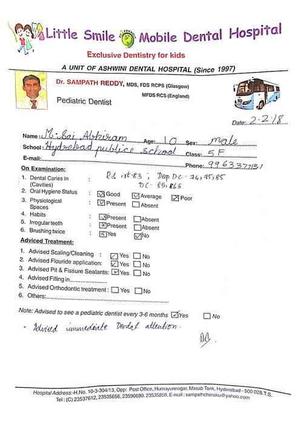 Little Smile Mobile Dental Hospital
Exclusive Dentistry for kids
A UNIT OF ASHWINI DENTAL HOSPITAL (Since 1997)
Dr. SAMPATH REDDY, MDS, FDS RCPS (Glasgow)
MFDS RCS (England)
Pediatric Dentist
Date: 2-2-18
Name: Abhiram Age: 10 Sex: male
School: Hyderabad public school Class: 5F
E-mail: Phone:
On Examination:
1. Dental Caries in (Cavities)
2. Oral Hygiene Status Good Average Poor
3. Physiological Spaces Present Absent
4. Habits Present Absent
5. Irregular teeth Present Absent
6. Brushing twice Yes No
Adviced Treatment:
1. Advised Scaling/Cleaning : Yes No
2. Advised Flouride application: Yes No
3. Advised Pit & Fissure Sealants: Yes No
4. Advised Filling in
5. Advised Orthodontic treatment : Yes No
6. Others:
Note: Advised to see a pediatric dentist every 3-6 months Yes No
- Advised immediate Dental attention.
Hospital Address: H.No. 10-3-304/13, Opp: Post Office, Humayunnagar, Masab Tank, Hyderabad - 500 028.T.S.